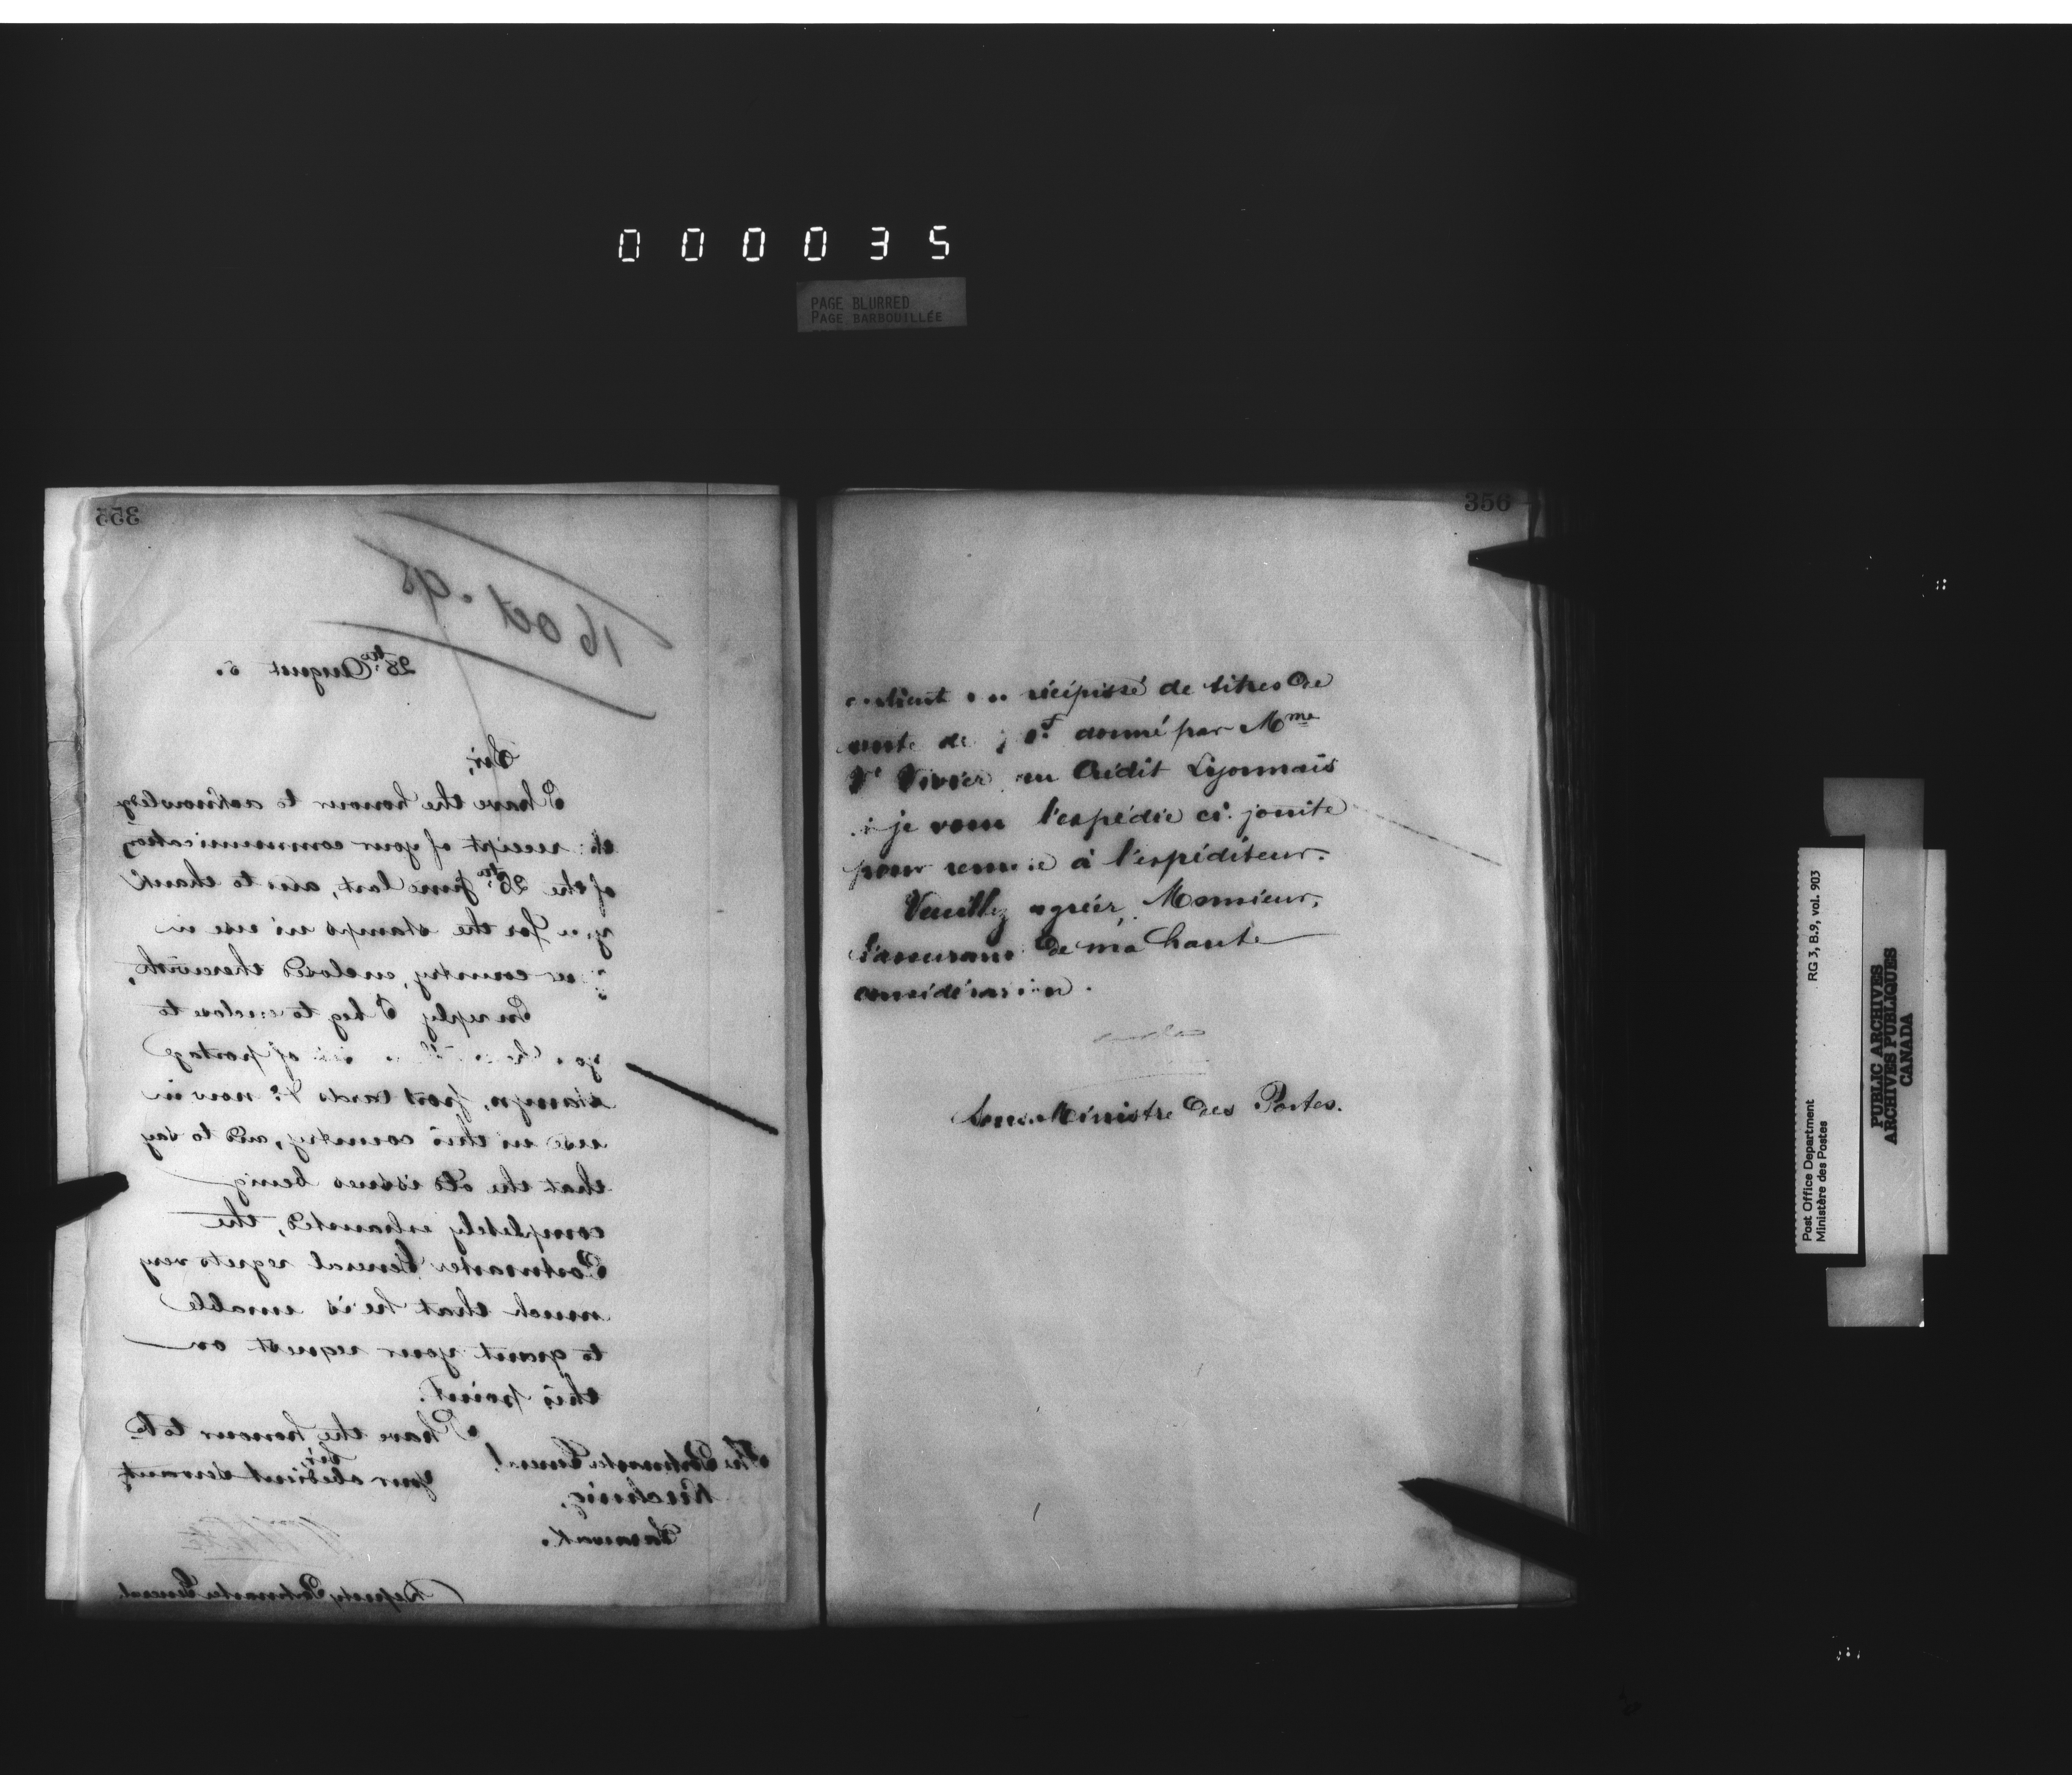 000035
PAGE BLURRED
PAGE BARBOUILLÉE
355
16 Oct. 95
28th August 5.
Sir,
I have the honour to acknowledge
the receipt of your communication
of the 26th June last, and to thank
you for the stamps in use in
your country, enclosed therewith.
In reply I beg to enclose to
you of postage
stamps, post cards &c now in
use in this country, and to say
that the old issues being
completely exhausted, the
Postmaster General regrets very
much that he is unable
to grant your request on
this point.
I have the honour to be
Sir,
Your obedient servant,
The Postmaster General
Kuching,
Sarawak.
Deputy Postmaster General
356
récépissé de titres de
de donné par Mme
Vivier au Crédit Lyonnais
je vous l'expédie ci-jointe
pour remise à l'expéditeur.
Veuillez agréer, Monsieur,
l'assurance de ma haute
considération.
Sous-Ministre des Postes.
Post Office Department
Ministère des Postes
RG 3, B.9, vol. 903
PUBLIC ARCHIVES
ARCHIVES PUBLIQUES
CANADA